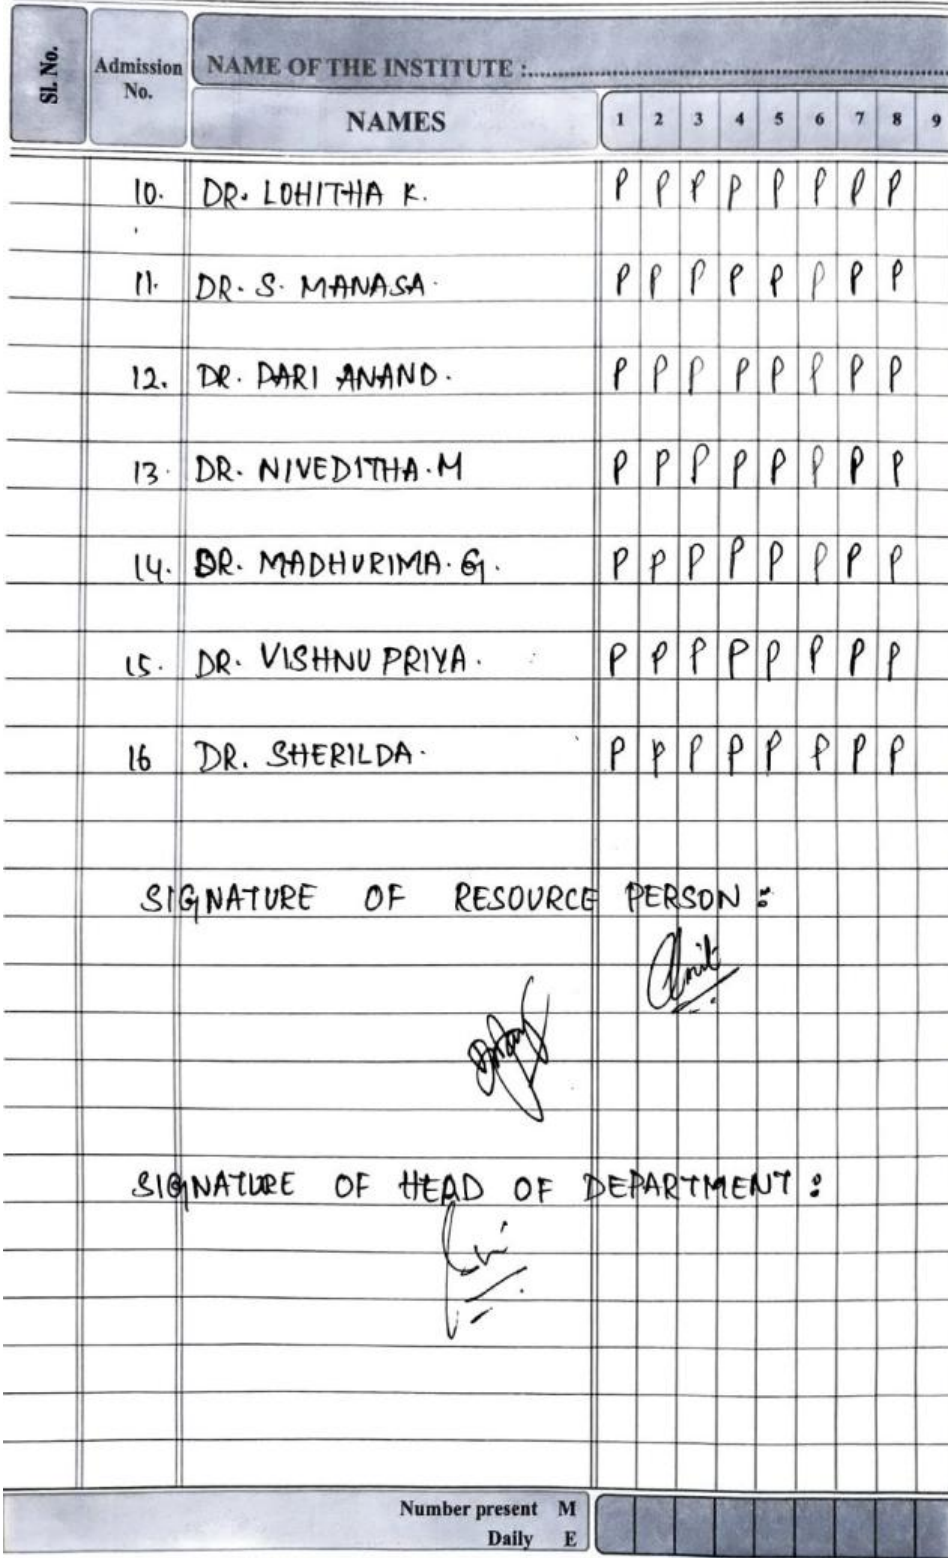 Sl. No.
Admission No.
NAME OF THE INSTITUTE :
NAMES 1 2 3 4 5 6 7 8 9
10. DR. LOHITHA K. P P P P P P P P
11. DR. S. MANASA. P P P P P P P P
12. DR. PARI ANAND. P P P P P P P P
13. DR. NIVEDITHA. M P P P P P P P P
14. DR. MADHURIMA. G. P P P P P P P P
15. DR. VISHNU PRIYA. P P P P P P P P
16 DR. SHERILDA. P P P P P P P P
SIGNATURE OF RESOURCE PERSON :
SIGNATURE OF HEAD OF DEPARTMENT :
Number present M
Daily E